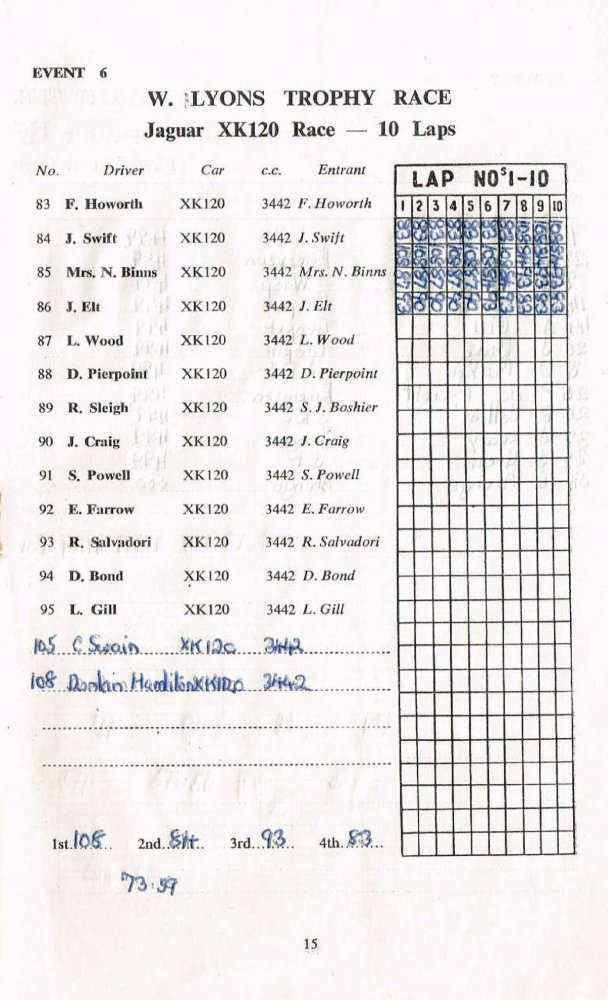 EVENT 6
W. LYONS TROPHY RACE
Jaguar XK120 Race — 10 Laps
No. Driver Car c.c. Entrant
LAP NOS 1-10
1 2 3 4 5 6 7 8 9 10
83 F. Howorth XK120 3442 F. Howorth
84 J. Swift XK120 3442 J. Swift
85 Mrs. N. Binns XK120 3442 Mrs. N. Binns
86 J. Elt XK120 3442 J. Elt
87 L. Wood XK120 3442 L. Wood
88 D. Pierpoint XK120 3442 D. Pierpoint
89 R. Sleigh XK120 3442 S. J. Boshier
90 J. Craig XK120 3442 J. Craig
91 S. Powell XK120 3442 S. Powell
92 E. Farrow XK120 3442 E. Farrow
93 R. Salvadori XK120 3442 R. Salvadori
94 D. Bond XK120 3442 D. Bond
95 L. Gill XK120 3442 L. Gill
105 C Swain XK120 3442
108 Hamilton XK120 3442
1st. 108 2nd. 84 3rd. 93 4th. 83
73.59
15